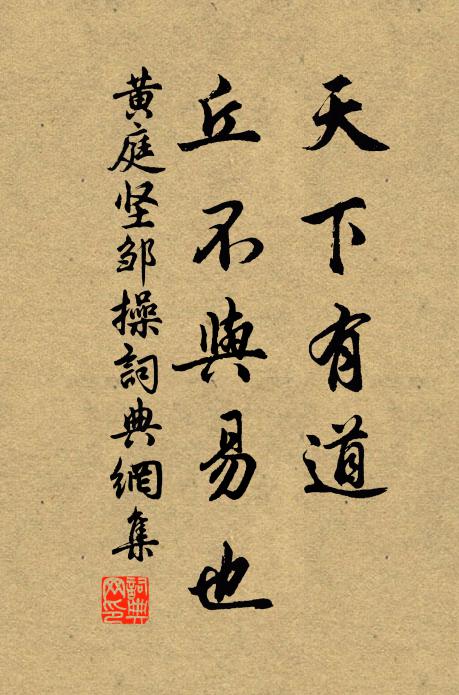 天下有道
丘不與易也
黄庭坚邹操詞典網集
詞典网印